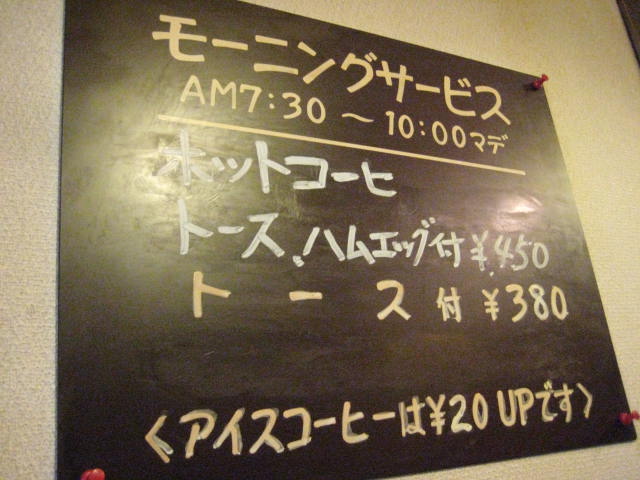 モーニングサービス
AM7:30 ～ 10:00マデ
ホットコーヒ
トースト、ハムエッグ付 ¥450
トースト付 ¥380
〈アイスコーヒーは¥20 UPです〉